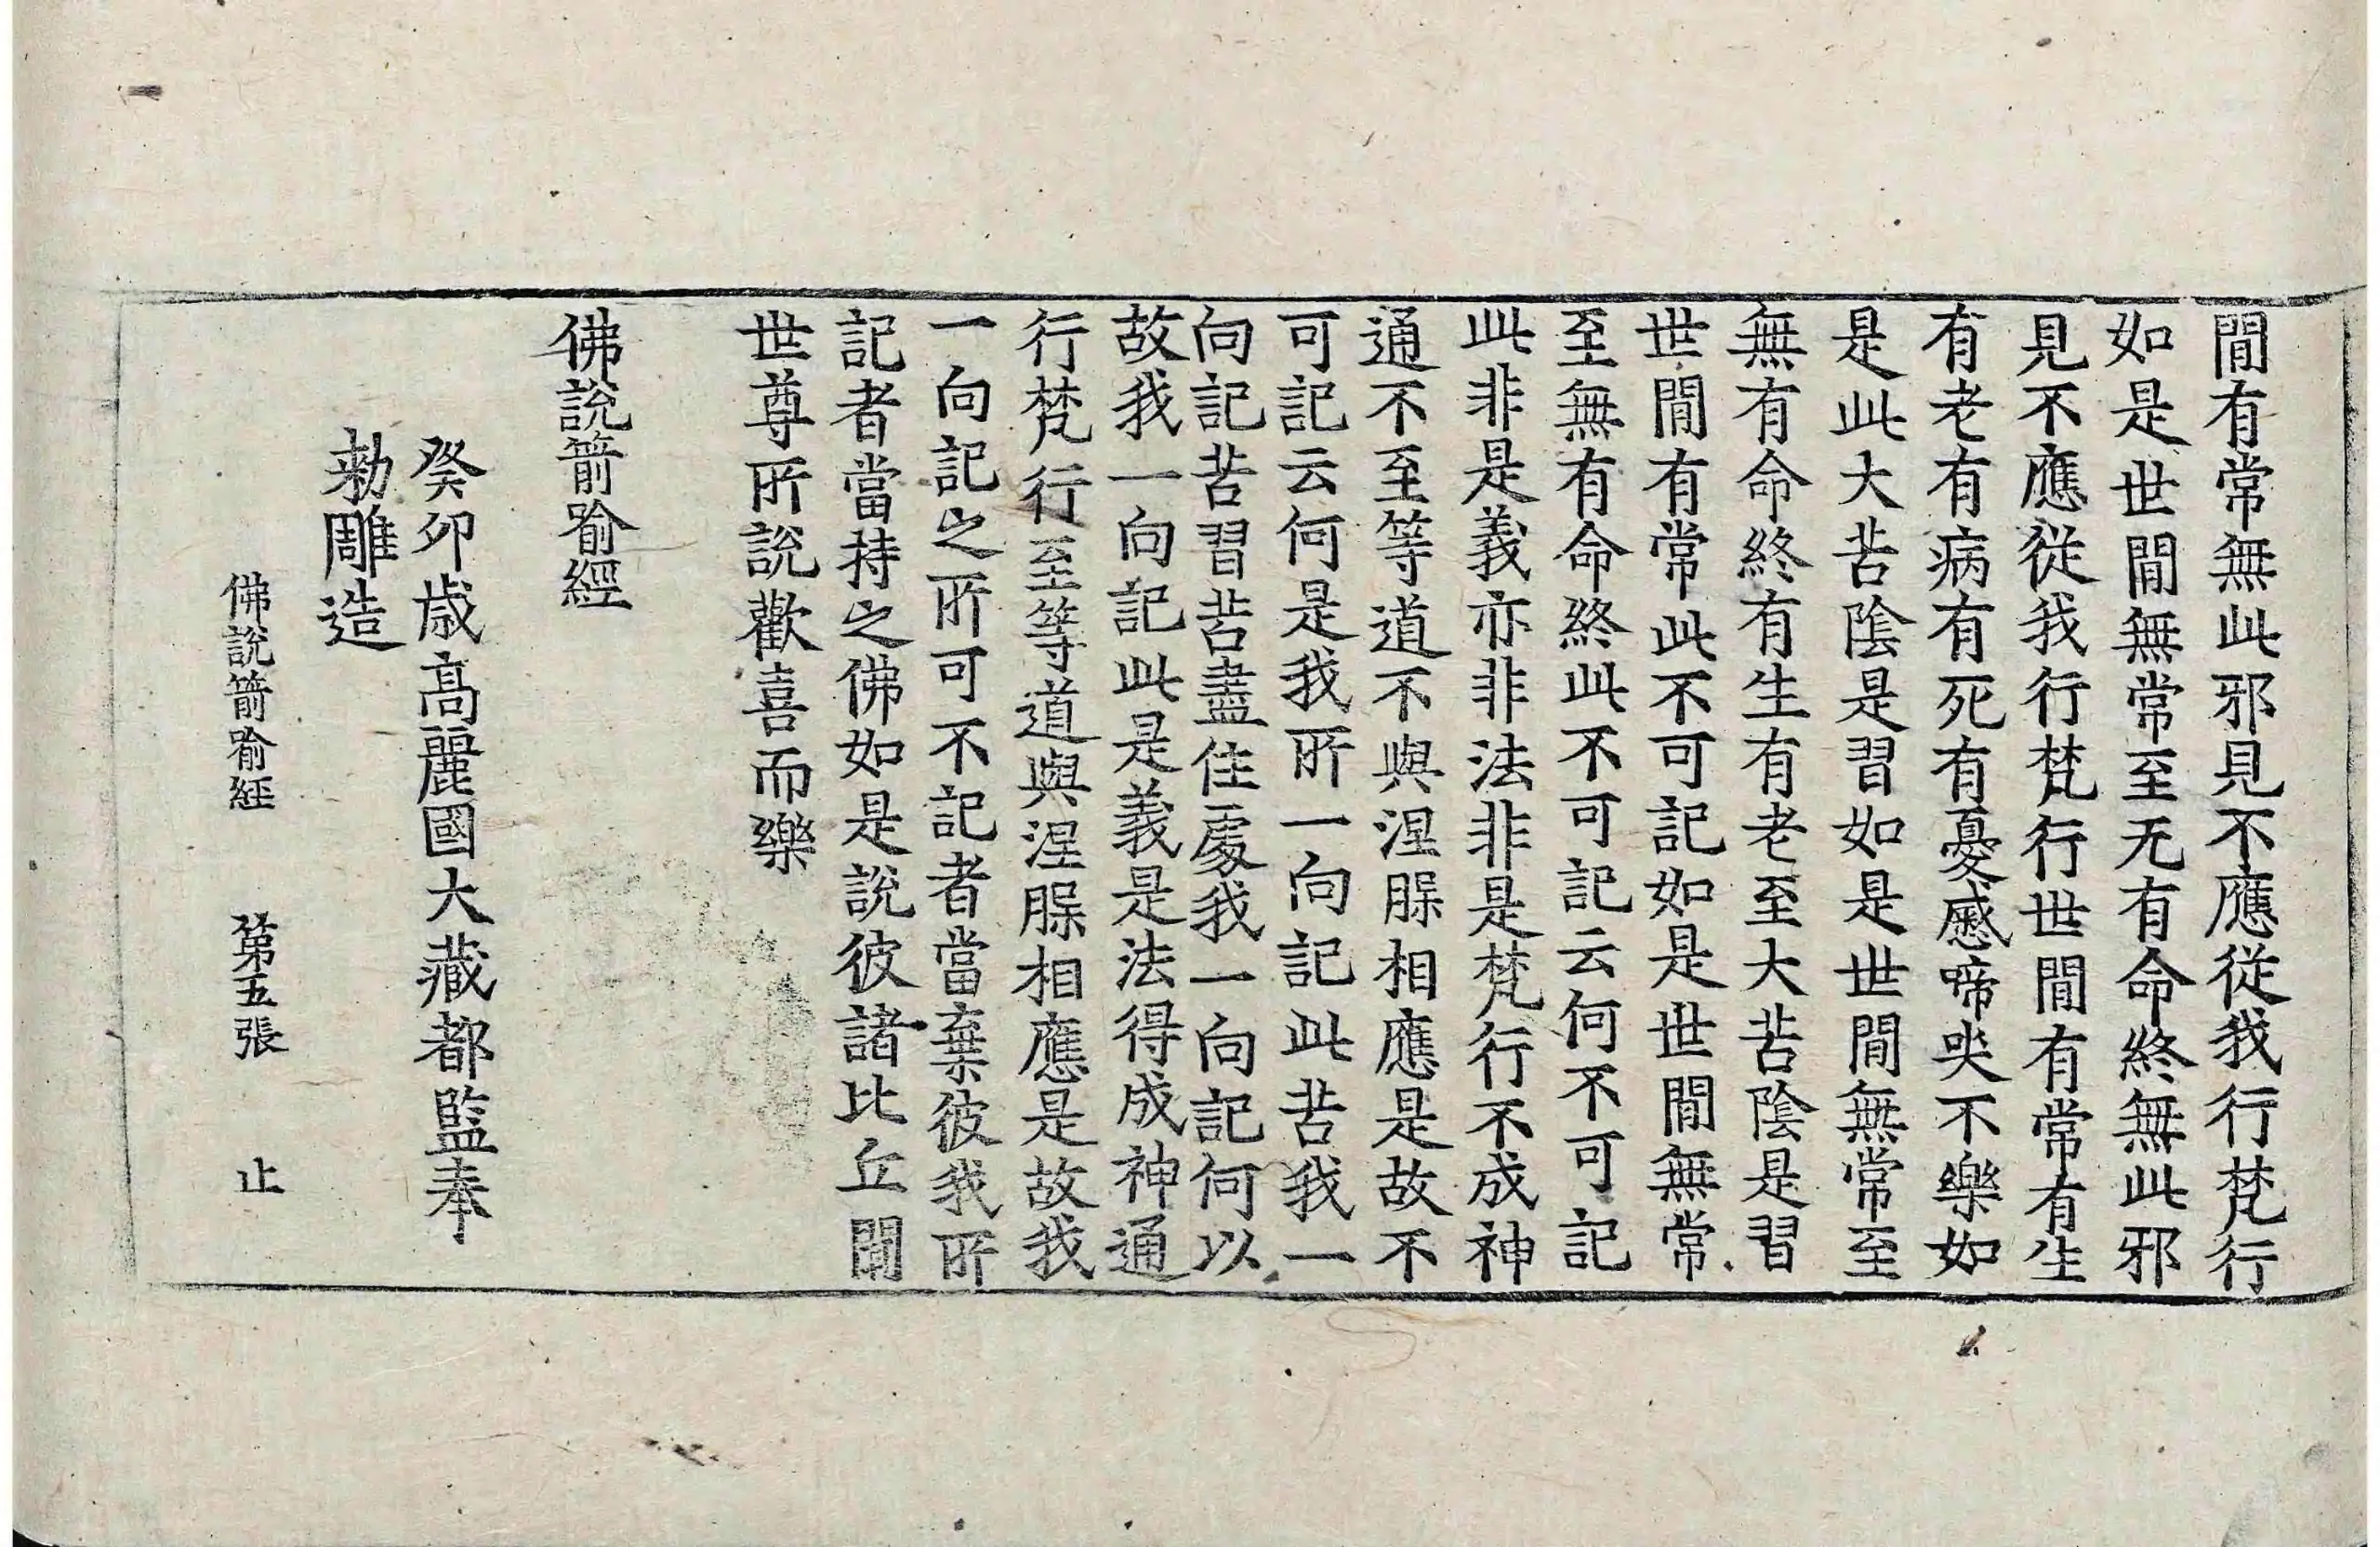 閒有常無此邪見不應從我行梵行
如是世閒無常至无有命終無此邪
見不應從我行梵行世閒有常有生
有老有病有死有憂慼啼哭不樂如
是此大苦陰是習如是世閒無常至
無有命終有生有老至大苦陰是習
世閒有常此不可記如是世閒無常
至無有命終此不可記云何不可記
此非是義亦非法非是梵行不成神
通不至等道不與涅腺相應是故不
可記云何是我所一向記此苦我一
向記苦習苦盡住處我一向記何以
故我一向記此是義是法得成神通
行梵行至等道與涅腺相應是故我
一向記之所可不記者當棄彼我所
記者當持之佛如是說彼諸比丘聞
世尊所說歡喜而樂
佛說箭喻經
癸卯歲高麗國大藏都監奉
勅雕造
佛說箭喻經 第五張 止